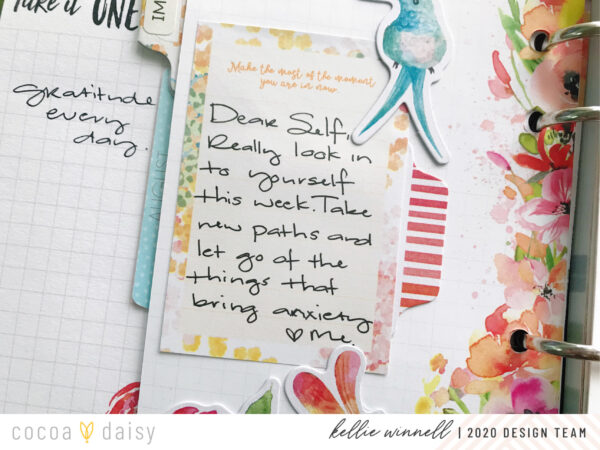 Take it ONE
IM
gratitude
every
day.
Make the most of the moment
you are in now.
Dear Self,
Really look in
to yourself
this week. Take
new paths and
let go of the
things that
bring anxiety
me.
cocoa daisy
kellie winnell | 2020 DESIGN TEAM